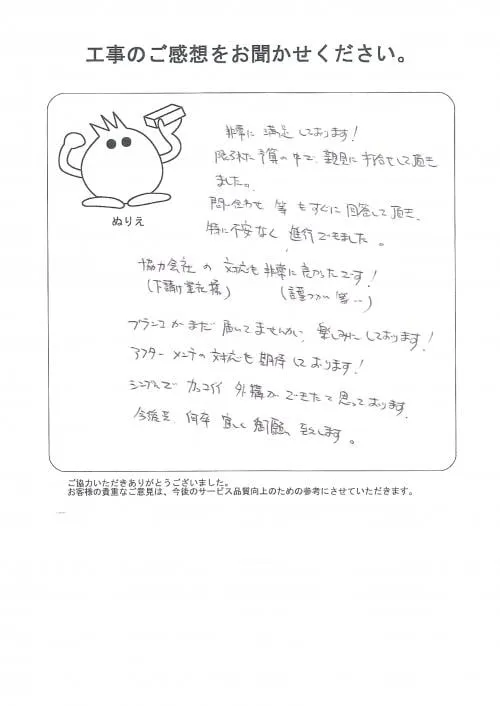 工事のご感想をお聞かせください。
ぬりえ
非常に満足しております!
限られた予算の中で、親身に手捨せして頂き
ました。
問い合わせ 等 もすぐに回答して頂き、
特に不安なく 進行できました。
協力会社 の 対応も非常に良かったです!
(下請け業社様) (言葉づかい 等…)
ブランコがまだ 届いてませんが、楽しみにしております!
アフターメンテの対応も期待しております!
シンプルで カッコイイ 外構ができたと思っております。
今後共、何卒 宜しく御願い致します。
ご協力いただきありがとうございました。
お客様の貴重なご意見は、今後のサービス品質向上のための参考にさせていただきます。